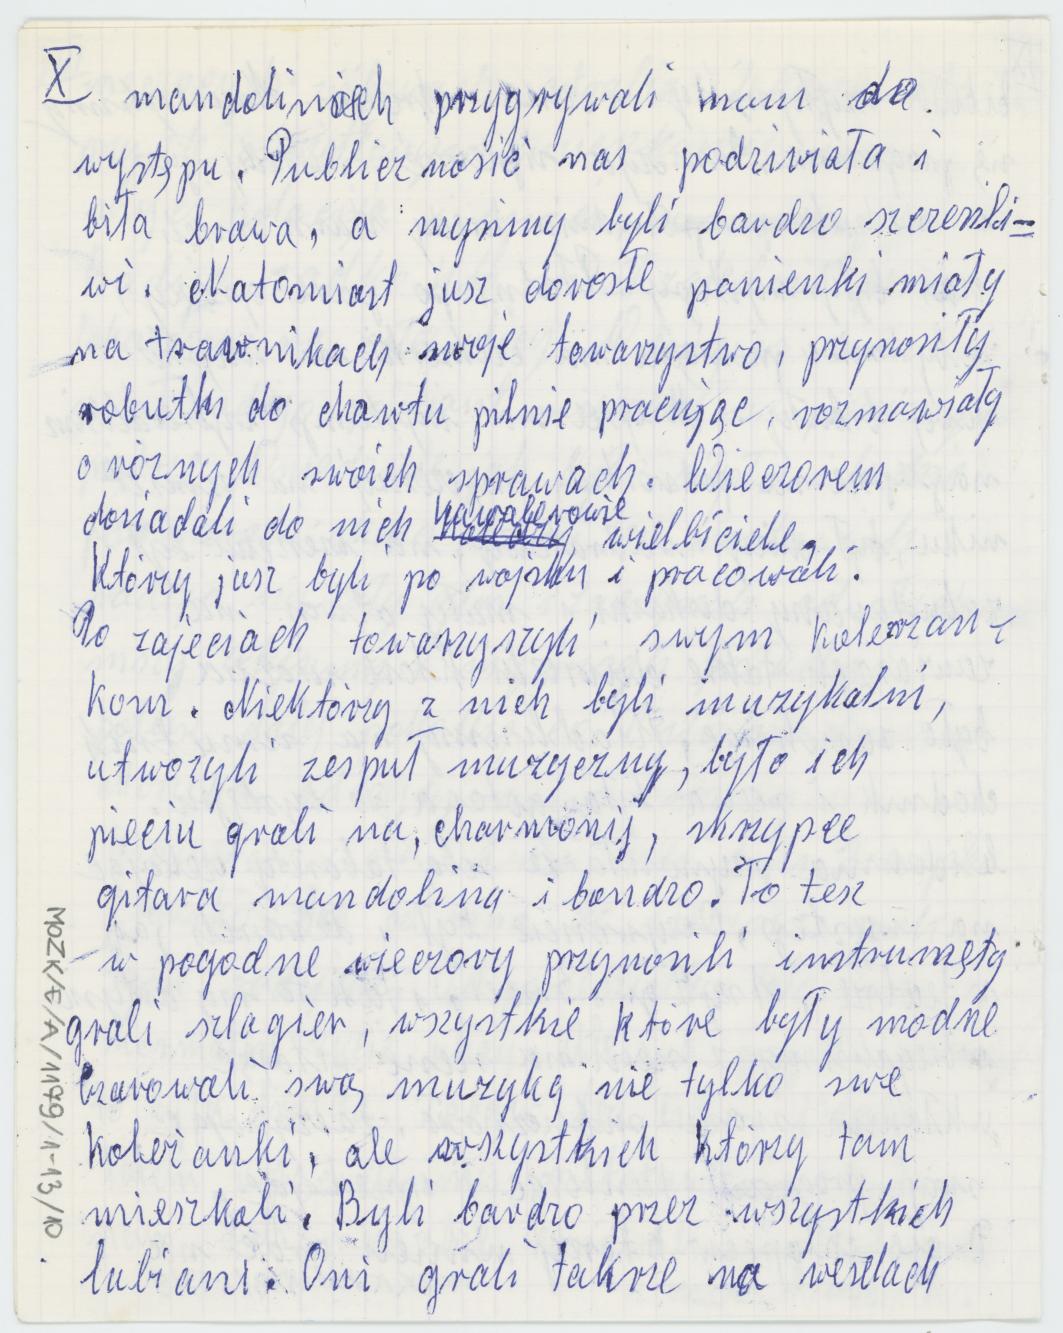 X mandolinach przygrywali nam do
występu. Publicznosić nas podziwiała i
biła brawa, a myśmy byli bardzo szczenśli-
wi. Natomiast jusz dorosłe panienki miały
na trawnikach swoje towarzystwo, przynosiły
robutki do chawtu pilnie pracując, rozmawiały
o różnych swoich sprawach. Wieczorem
dosiadali do nich kawalerowie wielbiciele.
Którzy jusz byli po wojsku i pracowali.
Po zajeciach towarzyszyli swym koleżan-
kom. Niektórzy z nich byli muzykalni,
utwożyli zespuł muzyczny, było ich
pieciu grali na, charmonij, skrzypce
gitara mandolina i bandżo. To tesz
w pogodne wieczory przynosili instrumęty
grali szlagiery, wszystkie które były modne
Czarowali swą muzyką nie tylko swe
koleżanki, ale wszystkich którzy tam
mieszkali. Byli bardzo przez wszystkich
lubiani. Oni grali takrze na weselach
MOZK/E/A/1179/1-13/10